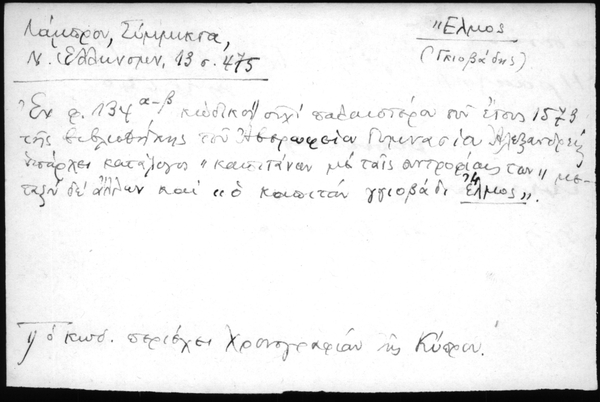 Λάμπρου, Σύμμικτα,
Ν. Ἑλληνομν. 13 σ. 475
"Ελμος
(Γκιοβάδης)
Ἐν φ. 134 α-β κώδικος¹⁾ οὐχὶ παλαιοτέρου τοῦ ἔτους 1573
τῆς βιβλιοθήκης τοῦ Ἀβερωφείου Γυμνασίου Ἀλεξανδρείας
ὑπάρχει κατάλογος "καπιτάνων μὲ ταῖς συντροφίαις των" με-
ταξὺ δ' ἄλλων καὶ "ὁ καπετὰν γγιοβάδι ἔλμος".
1) ὁ κωδ. περιέχει Χρονογραφίαν τῆς Κύπρου.